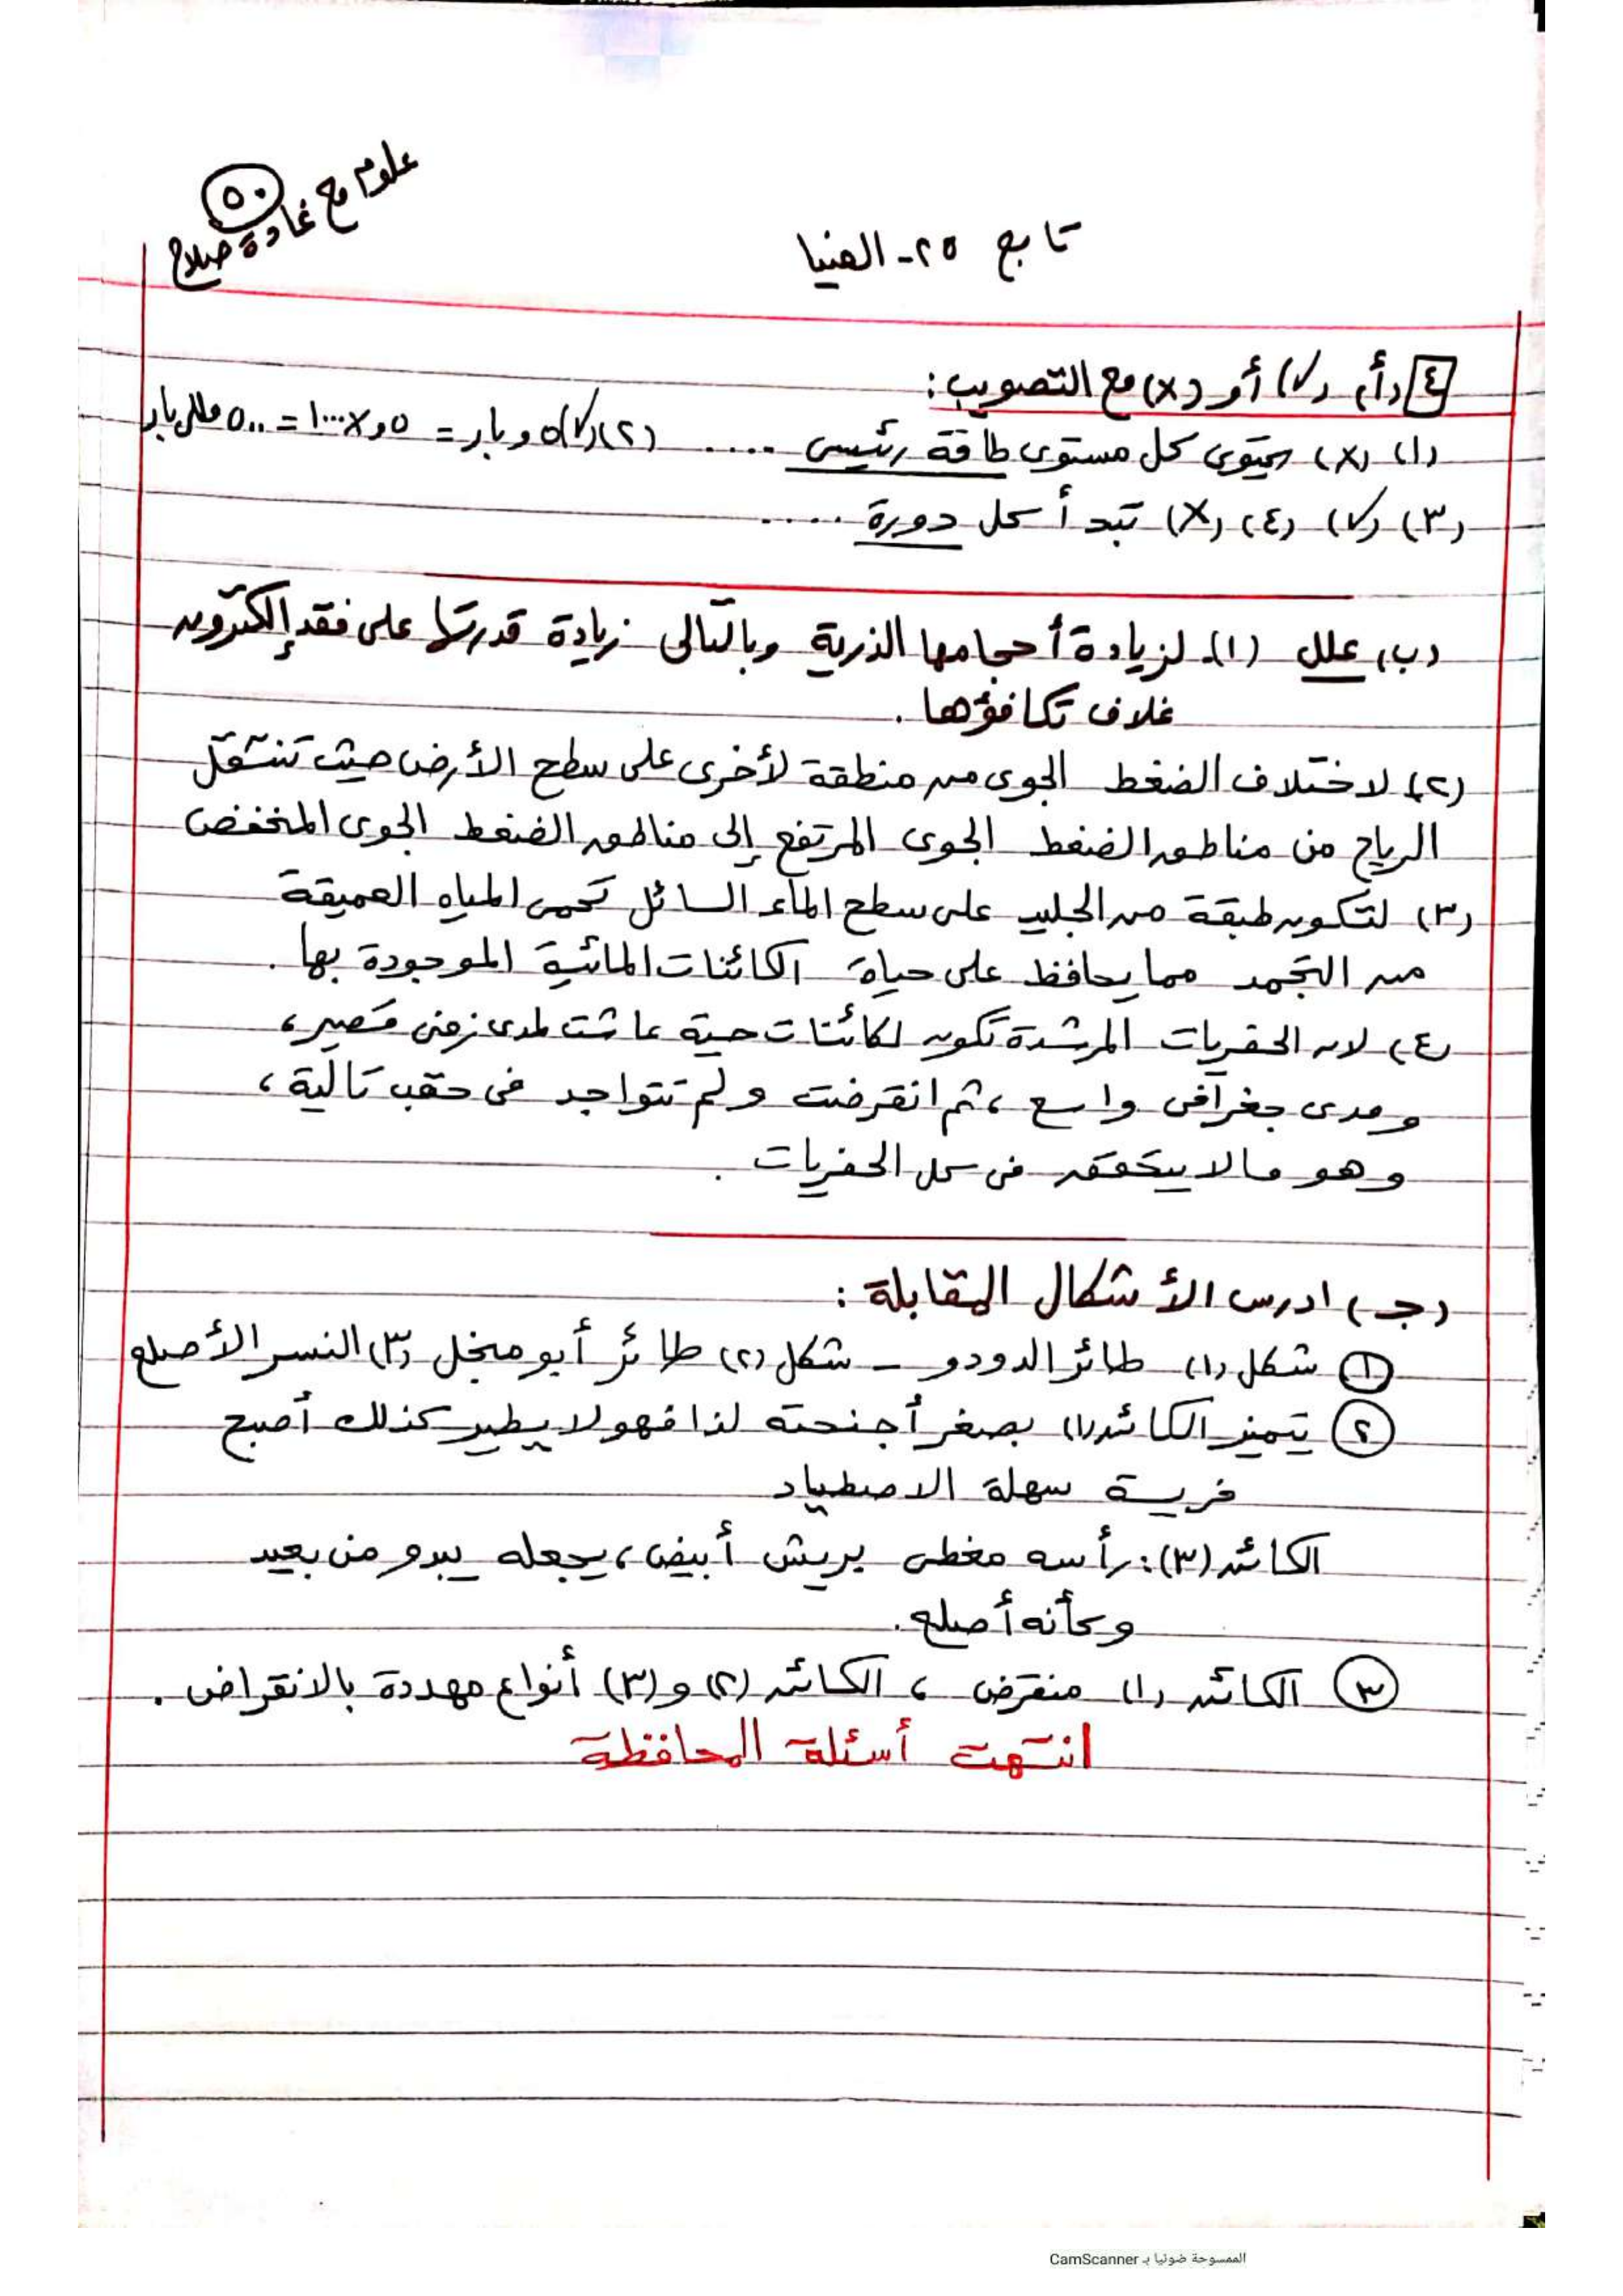 علوم مع غادة صلاح
٥٠
تابع ٢٥- المنيا
٤ (أ) (✓) أو (x) مع التصويب:
(١) (x) يحتوى كل مستوى طاقة رئيسى ..... (٢) (✓) ٥و بار = ٥و x ١٠٠٠ = ٥٠٠ مللى بار
(٣) (✓) (٤) (x) تبدأ كل دورة .....
(ب) علل (١)- لزيادة أحجامها الذرية وبالتالى زيادة قدرتها على فقد إلكترون
غلاف تكافؤها .
(٢) لاختلاف الضغط الجوى من منطقة لأخرى على سطح الأرض حيث تنتقل
الرياح من مناطق الضغط الجوى المرتفع إلى مناطق الضغط الجوى المنخفض
(٣) لتكون طبقة من الجليد على سطح الماء السائل تحمى المياه العميقة
من التجمد مما يحافظ على حياة الكائنات المائية الموجودة بها .
(٤) لأن الحفريات المرشدة تكون لكائنات حية عاشت لمدى زمنى قصير،
ومدى جغرافى واسع، ثم انقرضت ولم تتواجد فى حقب تالية،
وهو مالا يتحقق فى كل الحفريات .
(جـ) ادرس الأشكال المقابلة :
١ شكل (١) طائر الدودو - شكل (٢) طائر أبو منجل (٣) النسر الأصلع
٢ يتميز الكائن (١) بصغر أجنحته لذا فهو لا يطير كذلك أصبح
فريسة سهلة الاصطياد
الكائن (٣): رأسه مغطى بريش أبيض، يجعله يبدو من بعيد
وكأنه أصلع.
٣ الكائن (١) منقرض ، الكائن (٢) و (٣) أنواع مهددة بالانقراض .
انتهت أسئلة المحافظة
الممسوحة ضوئيا بـ CamScanner